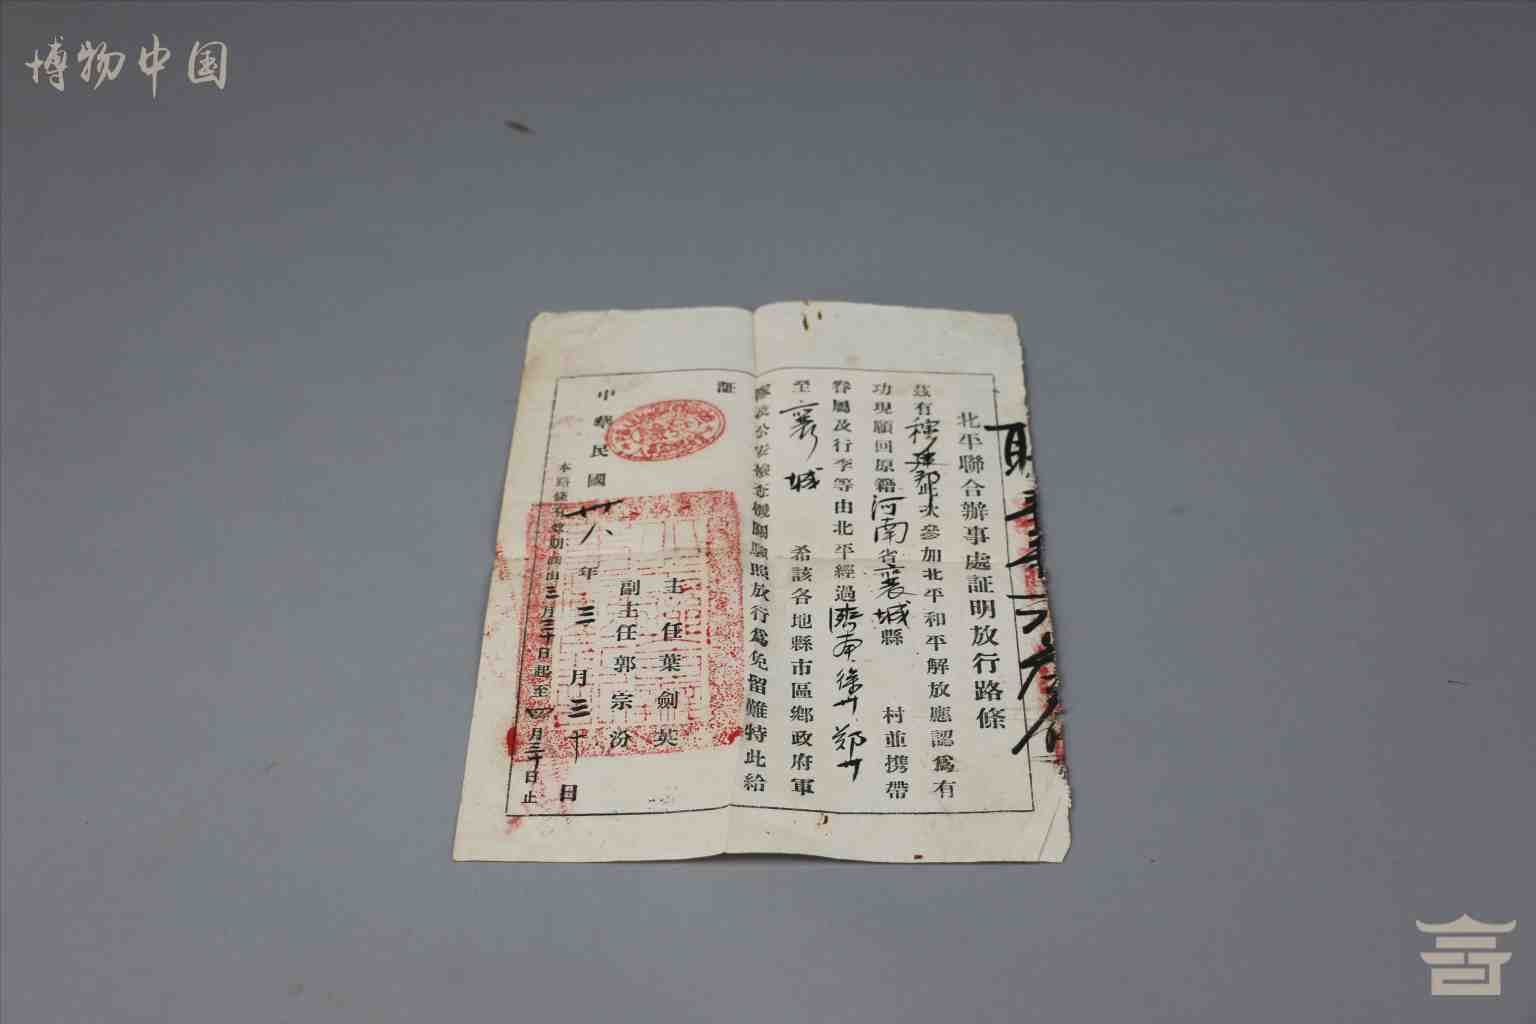 博物中国
北平聯合辦事處証明放行路條
茲有 建 此次參加北平和平解放應認爲有
功現願回原籍河南省襄城縣 村並携帶
眷屬及行李等由北平經過濟南徐州鄭州
至襄城 希該各地縣市區鄉政府軍
隊及公安檢查機關驗照放行爲免留難特此給
証
主任葉劍英
副主任郭宗汾
中華民國廿八年三月三十日
本路條有效期間由三月三十日起至四月三十日止